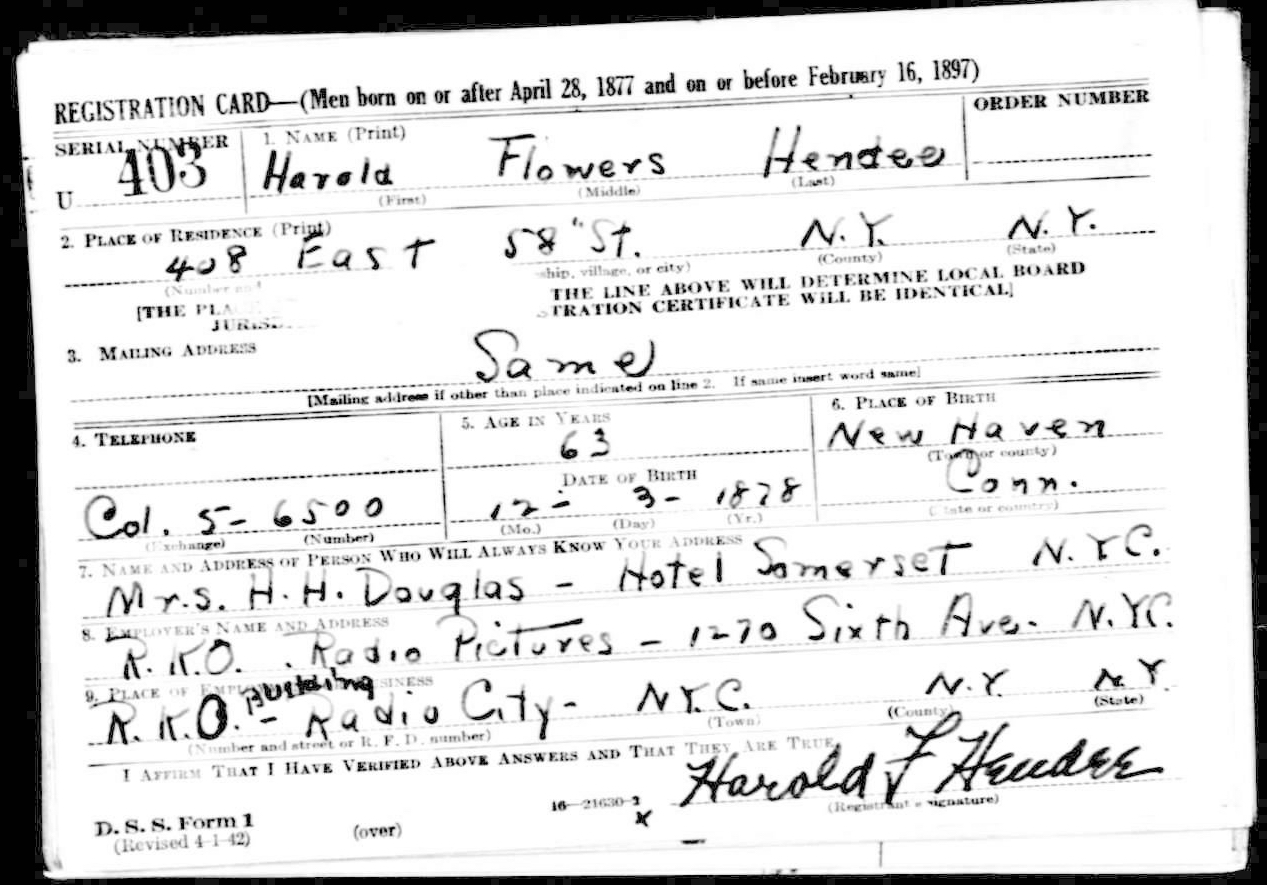 REGISTRATION CARD—(Men born on or after April 28, 1877 and on or before February 16, 1897)
SERIAL NUMBER 1. NAME (Print) ORDER NUMBER
U 403 Harold Flowers Hendee
(First) (Middle) (Last)
2. PLACE OF RESIDENCE (Print)
408 East 58" St. N.Y. N.Y.
(Number and ship, village, or city) (County) (State)
[THE PLA THE LINE ABOVE WILL DETERMINE LOCAL BOARD
JURIS TRATION CERTIFICATE WILL BE IDENTICAL]
3. MAILING ADDRESS
Same
[Mailing address if other than place indicated on line 2. If same insert word same]
4. TELEPHONE 5. AGE IN YEARS 6. PLACE OF BIRTH
63 New Haven
(Town or county)
DATE OF BIRTH
Col. 5- 6500 12- 3- 1878 Conn.
(Exchange) (Number) (Mo.) (Day) (Yr.) (State or country)
7. NAME AND ADDRESS OF PERSON WHO WILL ALWAYS KNOW YOUR ADDRESS
Mrs. H. H. Douglas - Hotel Somerset N.Y.C.
8. EMPLOYER'S NAME AND ADDRESS
R.K.O. Radio Pictures - 1270 Sixth Ave. N.Y.C.
9. PLACE OF EMPLOYMENT OR BUSINESS
R.K.O. Building - Radio City - N.Y.C. N.Y. N.Y.
(Number and street or R. F. D. number) (Town) (County) (State)
I AFFIRM THAT I HAVE VERIFIED ABOVE ANSWERS AND THAT THEY ARE TRUE.
Harold F Hendee
D. S. S. Form 1 16—21630-2 (Registrant's signature)
(Revised 4-1-42) (over) x